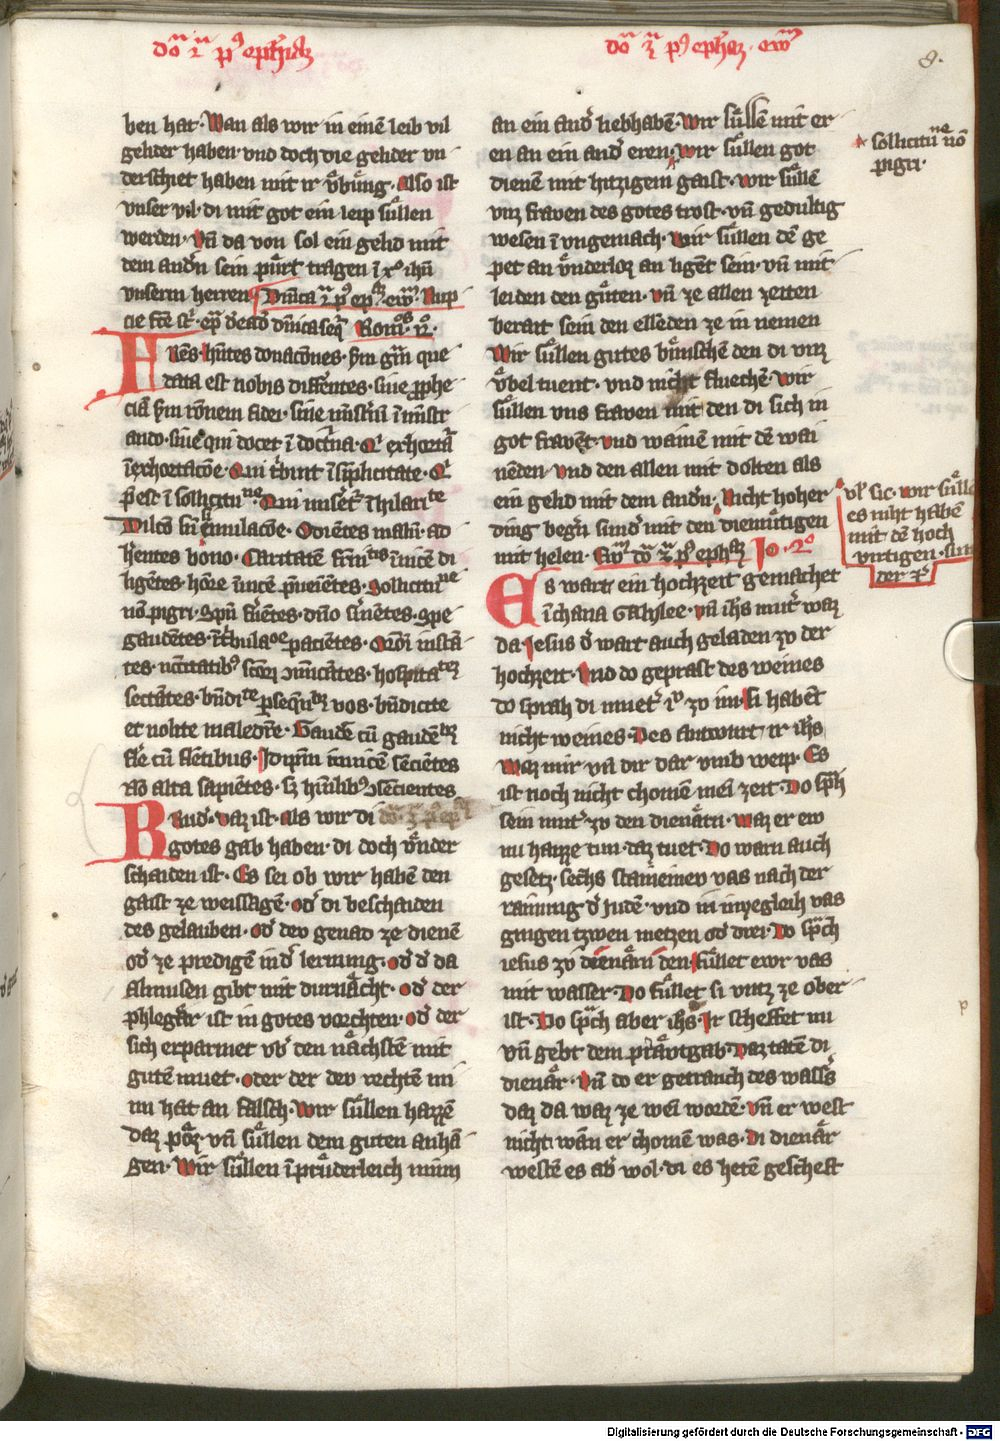 do᷒ ıͣ p᷒ epħıā
do᷒ ꝫᷓ p᷒ epheꝫ · ewͫ
8.
ben hat · Wan als wir in einē leib vil
gelider haben · vnd doch die gelider vn
derschiet haben mit ir vͤbuͤng · Also ist
vnser vil · di mit got ein leip suͤllen
werden · Vn̄ da von sol ein gelid mit
dem andn̄ sein puͤrt tragen ī xo ihū
vnserm herren · Dn̄ica
Rom̄
FRr̄es · hn̄tes donac̄ones · s̄m grām que
data est nobis differētes · siue ꝓphe
ciā s̄m rōnem fidei · siue mīsteriū ī mīstr
ando · siue qui docet ī doctīna · Qͥ exhortāt
ī exhortacōe · Qui tͥbuit ī sīplicitate · Qͥ
p̄est ī sollicituⁿᵉ · Qui miseret͛ ī hilariᵗᵉ
Dilcō sn̄ simulacōe · Odiētes malū · ad
herentes bono · Caritatē frn̄iᵗⁱˢ īuicē di
ligētes · hōre īuicē p̄ueniētes · Sollicituⁿᵉ
nō pigri · Spū feruētes · dn̄o s͛uiētes · Spe
gaudētes · ī tͥbulaᵒᵉ paciētes · Orōi instā
tes · nc̄citatibꝰ scōꝝ ꝯmunicātes · hospitaᵗᵉᵐ
sectātes · bn̄diᵗᵉ ꝑseqn̄tibꝰ vos · bn̄dicite
et nolite maledic̄re · Gaude͛ cū gaudētibꝰ
fle͛ cū flētibus · Idip̄m inuicē sēciētes
Nō alta sapiētes · sꝫ hūilibꝰ ꝯsēcientes
BRud͛ · daz ist · Als wir di
gotes gab haben · di doch vͤnder
schaiden ist · Es sei ob wir habē den
gaist ze weissagē · od͛ di beschaiden
des gelauben · od͛ dev genad ze dienē
od͛ ze predigē in d͛ lernung · od͛ d͛ da
Almusen gibt mit durnaͤcht · od͛ der
phlegaͤr ist in gotes vorchten · od͛ der
sich erparmet vb͛ den naͤchstē mit
gutē muet · oder der dev rechtē mi
nn hat an falsch · Wir suͤllen hazzē
daz poͤz vn̄ suͤllen dem guten anhā
gen · Wir suͤllen ī pruͤderleich minn
an ein and͛ liebhabē · Wir suͤllē mit er
en an ein and͛ eren · Wir suͤllen got
dienē mit hitzigem gaist · Wir suͤllē
vnz fraven des gotes trost · vn̄ gedultig
wesen ī vngemach · Wir suͤllen dē ge
pet an vͤnderloz an ligēt sein · vn̄ mit
leiden den guͤten · vn̄ ze allen zeiten
berait sein den ellēden ze in nemen
Wir suͤllen gutes wuͤnschē den di vnz
vͤbel tuent · vnd nicht fluechē · Wir
suͤllen vns fraven mit den di sich in
got fravēt · vnd wainē mit dē wai
nēden · vnd den allen mit dolten als
ein gelid mit dem andn̄ · Nicht hoher
ding beg͛n sund͛ mit den diemuͤtigen
mit helen · Ewͫ do᷒ ꝫᷓ p᷒ ephīa Jo · 2º
Es wart ein hochzeit gemachet
ī chana Galylee · vn̄ ihs mut͛ waz
da · Jesus d͛ wart auch geladen zv der
hochzeit · Vnd do geprast des weines
do sprah di muet͛ ihu zv im · Si habēt
nicht weines · Des Antwurt ir ihs
Waz mir vn̄ dir dar vmb weip · Es
ist noch nicht chomē mei zeit · Do sp̄ch
sein mut͛ zv den dienaͤrn · Waz er ew
nu haizze tun · daz tuet · Do warn auch
gesetz · sechs stainēinev vas nach der
rainūg d͛ Juden · vnd in inyegleih vas
gingen tzwen metzen od͛ drei · Do sp̄ch
iesus zv dienaͤrn den · fuͤllet ewr vas
mit wasser · Do fuͤllet si vntz ze ober
ist · Do sp̄ch aber ihs · Ir scheffet nu
vn̄ gebt dem priaͤvtgab · Daz tatē di
dienaͤr · Vn̄ do er getranch des wass͛s
daz da waz ze wei wordē · vn̄ er west
nicht wān er chomē was · Di dienaͤr
westē es ab͛ wol · di es hetē geschefft
sollicituⁿᵉ nō
pigri ·
vl͛ sic · wir suͤlle
es niht habē
mit dē hoch
virtigen · sun
der ꝛc͛
Digitalisierung gefördert durch die Deutsche Forschungsgemeinschaft - DFG